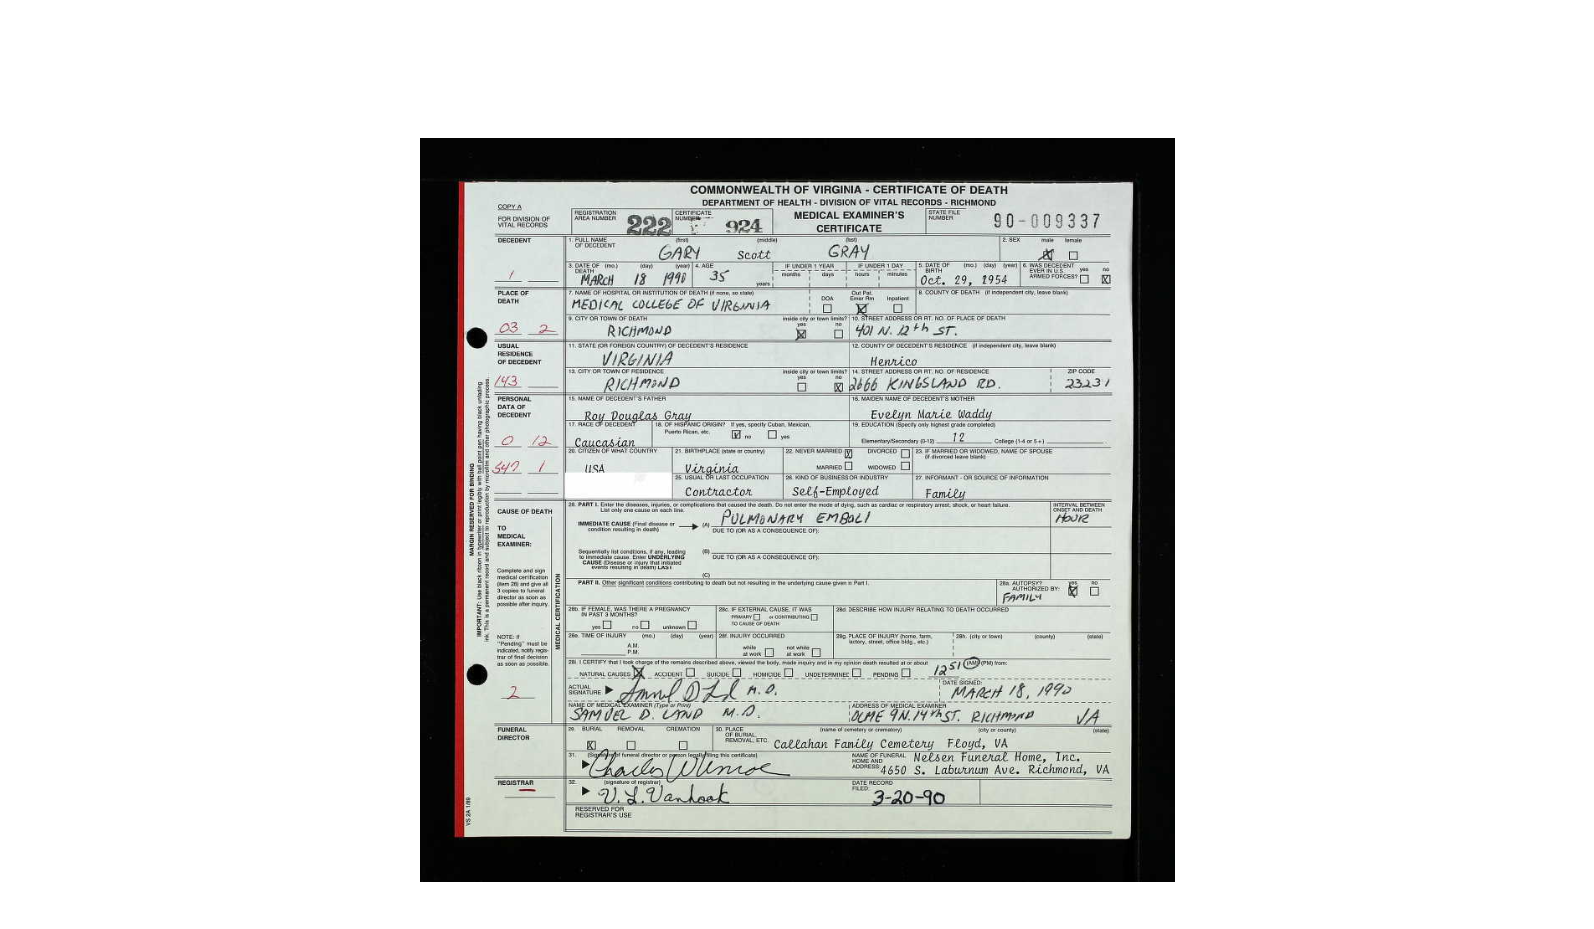 COMMONWEALTH OF VIRGINIA - CERTIFICATE OF DEATH
DEPARTMENT OF HEALTH - DIVISION OF VITAL RECORDS - RICHMOND
COPY A
FOR DIVISION OF VITAL RECORDS
REGISTRATION AREA NUMBER 222 CERTIFICATE NUMBER 924 MEDICAL EXAMINER'S CERTIFICATE STATE FILE NUMBER 90-009337
DECEDENT
1. FULL NAME OF DECEDENT (first) (middle) (last) 2. SEX male female
GARY Scott GRAY
3. DATE OF DEATH (mo.) (day) (year) 4. AGE IF UNDER 1 YEAR IF UNDER 1 DAY 5. DATE OF BIRTH (mo.) (day) (year) 6. WAS DECEDENT EVER IN U.S. ARMED FORCES? yes no
months days hours minutes
MARCH 18 1990 35 years Oct. 29, 1954 X
1
PLACE OF DEATH
7. NAME OF HOSPITAL OR INSTITUTION OF DEATH (if none, so state) DOA Out Pat. Emer Rm Inpatient 8. COUNTY OF DEATH (if independent city, leave blank)
MEDICAL COLLEGE OF VIRGINIA
9. CITY OR TOWN OF DEATH inside city or town limits? yes no 10. STREET ADDRESS OR RT. NO. OF PLACE OF DEATH
03 2 RICHMOND 401 N. 12th ST.
USUAL RESIDENCE OF DECEDENT
11. STATE (OR FOREIGN COUNTRY) OF DECEDENT'S RESIDENCE 12. COUNTY OF DECEDENT'S RESIDENCE (if independent city, leave blank)
VIRGINIA Henrico
13. CITY OR TOWN OF RESIDENCE inside city or town limits? yes no 14. STREET ADDRESS OR RT. NO. OF RESIDENCE ZIP CODE
143 RICHMOND X 2666 KINGSLAND RD. 23231
PERSONAL DATA OF DECEDENT
15. NAME OF DECEDENT'S FATHER 16. MAIDEN NAME OF DECEDENT'S MOTHER
Roy Douglas Gray Evelyn Marie Waddy
17. RACE OF DECEDENT 18. OF HISPANIC ORIGIN? If yes, specify Cuban, Mexican, Puerto Rican, etc. no yes 19. EDUCATION (Specify only highest grade completed)
0 12 Caucasian Elementary/Secondary (0-12) 12 College (1-4 or 5+)
20. CITIZEN OF WHAT COUNTRY 21. BIRTHPLACE (state or country) 22. NEVER MARRIED X DIVORCED 23. IF MARRIED OR WIDOWED, NAME OF SPOUSE (if divorced leave blank)
547 1 USA Virginia MARRIED WIDOWED
25. USUAL OR LAST OCCUPATION 26. KIND OF BUSINESS OR INDUSTRY 27. INFORMANT - OR SOURCE OF INFORMATION
Contractor Self-Employed Family
CAUSE OF DEATH
TO MEDICAL EXAMINER:
Complete and sign medical certification (item 28) and give all 3 copies to funeral director as soon as possible after inquiry.
NOTE: if "Pending" must be indicated, notify registrar of final decision as soon as possible.
2
MEDICAL CERTIFICATION
28. PART I. Enter the diseases, injuries, or complications that caused the death. Do not enter the mode of dying, such as cardiac or respiratory arrest, shock, or heart failure. List only one cause on each line. INTERVAL BETWEEN ONSET AND DEATH
IMMEDIATE CAUSE (Final disease or condition resulting in death) (A) PULMONARY EMBOLI HOUR
DUE TO (OR AS A CONSEQUENCE OF):
Sequentially list conditions, if any, leading to immediate cause. Enter UNDERLYING CAUSE (Disease or injury that initiated events resulting in death) LAST (B)
DUE TO (OR AS A CONSEQUENCE OF):
(C)
PART II. Other significant conditions contributing to death but not resulting in the underlying cause given in Part I. 28a. AUTOPSY? yes no
AUTHORIZED BY:
FAMILY
28b. IF FEMALE, WAS THERE A PREGNANCY IN PAST 3 MONTHS? yes no unknown 28c. IF EXTERNAL CAUSE, IT WAS PRIMARY or CONTRIBUTING TO CAUSE OF DEATH 28d. DESCRIBE HOW INJURY RELATING TO DEATH OCCURRED
28e. TIME OF INJURY (mo.) (day) (year) A.M. P.M. 28f. INJURY OCCURRED while at work not while at work 28g. PLACE OF INJURY (home, farm, factory, street, office bldg., etc.) 28h. (city or town) (county) (state)
28i. I CERTIFY that I took charge of the remains described above, viewed the body, made inquiry and in my opinion death resulted at or about 1251 (AM) (PM) from:
NATURAL CAUSES ACCIDENT SUICIDE HOMICIDE UNDETERMINED PENDING
ACTUAL SIGNATURE M.D. DATE SIGNED: MARCH 18, 1990
NAME OF MEDICAL EXAMINER (Type or Print) ADDRESS OF MEDICAL EXAMINER
SAMUEL D. LAND M.D. OCME 9 N. 14th ST. RICHMOND VA
FUNERAL DIRECTOR
29. BURIAL REMOVAL CREMATION 30. PLACE OF BURIAL, REMOVAL, ETC. (name of cemetery or crematory) (city or county) (state)
X Callahan Family Cemetery Floyd, VA
31. (Signature of funeral director or person legally filing this certificate) NAME OF FUNERAL HOME AND ADDRESS: Nelsen Funeral Home, Inc.
4650 S. Laburnum Ave. Richmond, VA
REGISTRAR
32. (signature of registrar) DATE RECORD FILED:
V. L. Vanhook 3-20-90
RESERVED FOR REGISTRAR'S USE
VS 2A 1/89
MARGIN RESERVED FOR BINDING